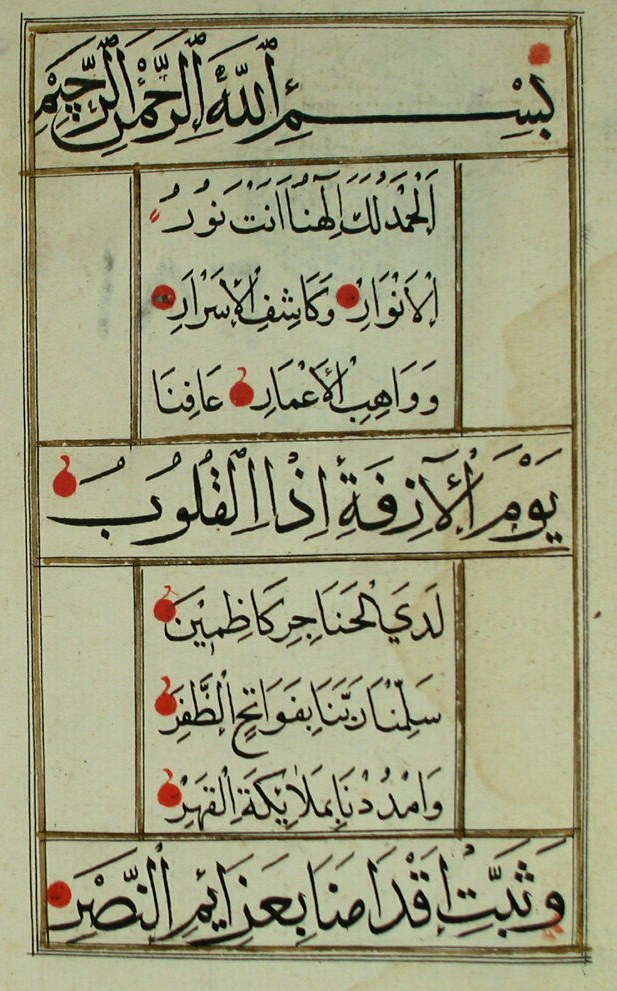 بِسْمِ اللّٰهِ الرَّحْمٰنِ الرَّحِيْمِ
اَلْحَمْدُ لَكَ اِلٰهَنَا اَنْتَ نُورُ
الْاَنْوَارِ وَكَاشِفِ الْاَسْرَارِ
وَوَاهِبِ الْاَعْمَارِ عَافِنَا
يَوْمَ الْاٰزِفَةِ اِذِ الْقُلُوبُ
لَدَي الْحَنَاجِرِ كَاظِمِيْنَ
سَلِّمْنَا رَبَّنَا بِفَوَاتِحِ الظَّفَرِ
وَامْدُدْنَا بِمَلَائِكَةِ الْقَهْرِ
وَثَبِّتْ اَقْدَامَنَا بِعَزَايِمِ النَّصْرِ